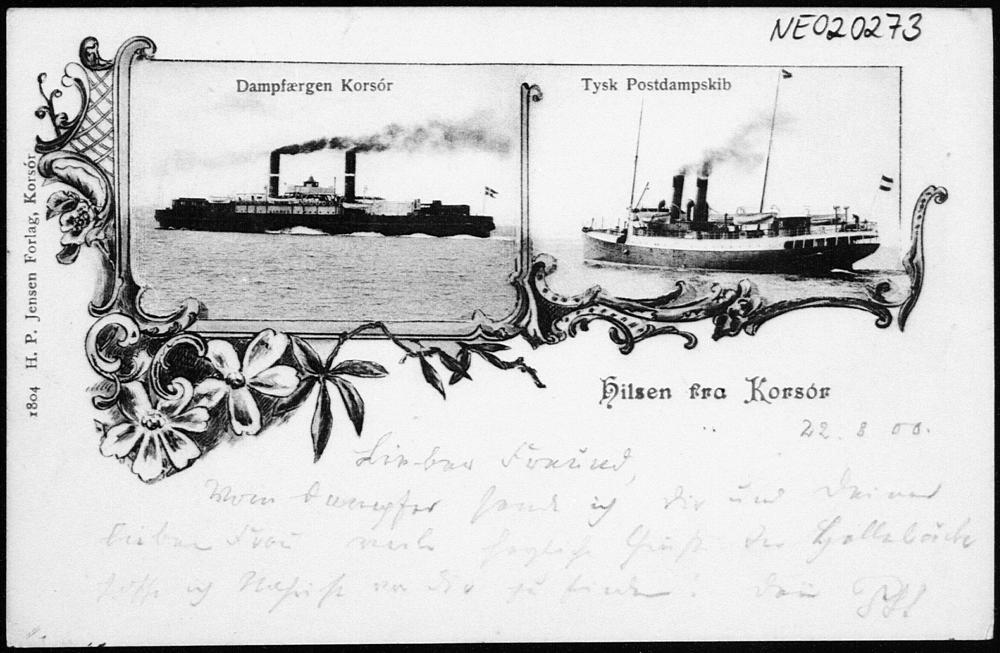 NE020273
Dampfærgen Korsór
Tysk Postdampskib
1804 H. P. Jensen Forlag, Korsór
Hilsen fra Korsór
22. 8 00.
Lieber Freund,
Vom Dampfer sende ich Dir und Deiner
lieben Frau viele herzliche Grüße. In
hoffe ich Nachricht von Dir zu finden! Dein